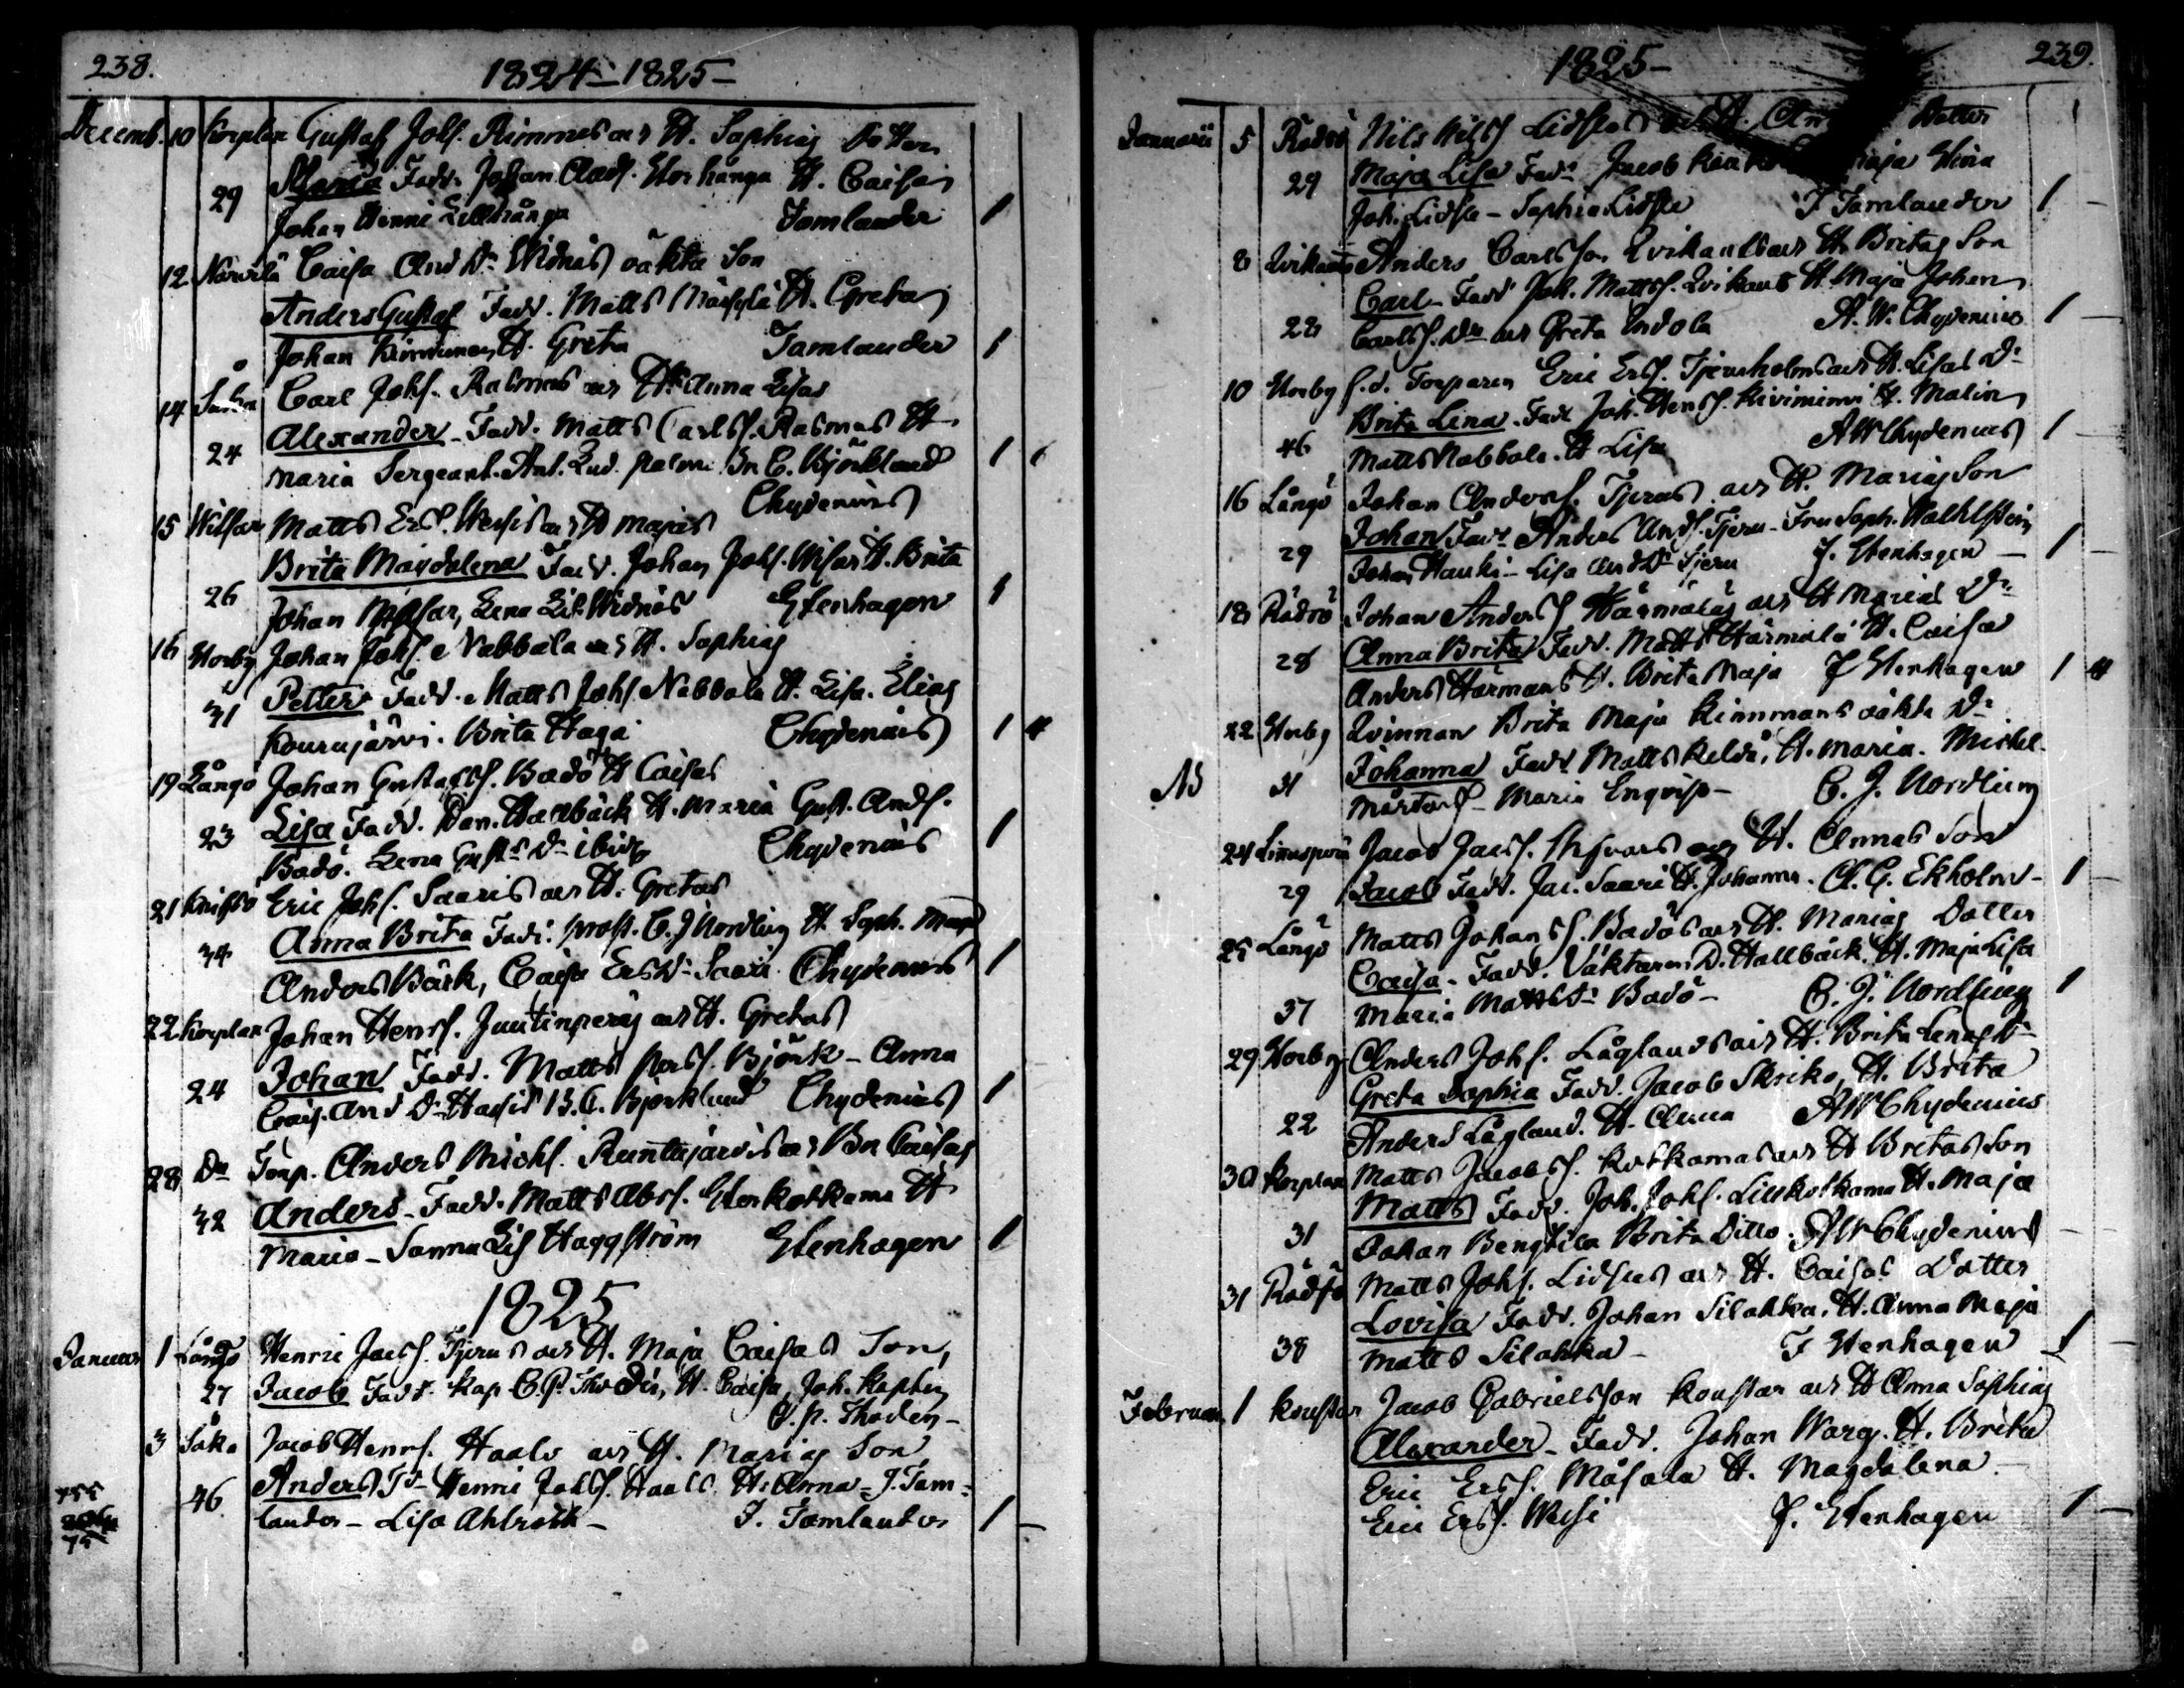 238.
1824 – 1825 –
Decemb. 10 Korplax Gustaf Johs. Rimmes och H. Sophias dotter
29 Maria Fadd. Johan Clads. Storhånga H. Caisa
Johan Henri Lillhånga Tamlander 1
12 Närvilä Caisa And Dr Widnäs oäkta Son
Anders Gustaf Fadd. Matts H. Greta
Johan H. Greta Tamlander 1
14 Såka Carl Johs. Rasmus och H. Anna Lisas
24 Alexander – Fadd. Matts Carlss. Rasmus H.
Maria Sergeant. Ant. Lud. B. C. Björklund 1
Chydenius
15 Wittsar Matts Ers. Wessis och H Majas
Brita Magdalena Fadd. Johan Johs. H. Brita
26 Johan Lena Lis. Widnäs Stenhagen 1
16 Storby Johan Johs. Nabbala och H. Sophias
31 Petter Fadd. Matts Johs Nabbala H. Lisa. Elias
Kourujärvi. Brita Haga Chydenius 1 4
19 Långö Johan Gustafss. Badö H Caisas
23 Lisa Fadd. Dan. Hallbäck H. Maria Gust. Ands.
Badö. Lena Gusts Dr ibid. Chydenius 1
21 Eric Johs. Saaris och H. Gretas
34 Anna Brita Fadd. Prost. C. J Nordling H. Soph. Marg
Anders Bäck, Caisa Ers Dr Saari. Chydenius 1
22 Korplax Johan Henrs. Juntinperäs och H. Gretas
24 Johan Fadd. Matts Perss. Björk – Anna
Cais. And Dr Hassis B. C. Björklund Chydenius 1
28 Do Torp. Anders Michs. Runtujärvis och Br Caisas
32 Anders – Fadd. Matts Abrs. Storkotkama H
Maria – Sanna Lis Häggström Stenhagen 1
1825
Januar 1 Långö Henric Jacss. Tjerus och H. Maja Caisas Son,
27 Jacob Fadd. Kap C P. Thodén, H. Caisa, Joh. Kapten
C. P. Thoden –
3 Såka Jacob Henrs. Haals och H. Marias Son
46. Anders Fd Henric Johss. Haals H. Anna = J. Tam=
lander – Lisa Ahlroth – J. Tamlander 1 –
1825 –
239.
Januarii 5 Rödsö Nils Nilss Lidstes och H. Dotter
29 Maja Lisa Fadr Jacob Maja Stina
Joh. Lidste – Sophia Lidste J Tamlander 1 –
8 Qvikants Anders Carlsson Qvikants och H. Britas Son
Carl – Fadr Joh. Mattss. Qvikant H. Maja Johan
28 Carlss. Dr och Greta Indola A. W. Chydenius 1 –
10 Storby f.d. Torparen Eric Erss. Tjeruholms och H. Lisas Dr
Brita Lena. Fadd Joh. Henrs. Kiviniemi H. Malin
46 Matts Nabbala. H Lisa A W Chydenius 1 –
16 Långö Johan Anderss. Tjerus och H. Marias Son
Johan Fadr Anders Ands. Tjeru – Fru Soph. Wahlsten
29 Johan Hauki – Lisa And Dr Tjeru J. Stenhagen – 1 –
18 Rödsö Johan Anderss Härmäläs och H Marias Dr
28 Anna Brita Fadd. Matts Härmälä H. Caisa
Anders Härmans H. Brita Maja J Stenhagen 1 4
22 Storby Qvinnan Brita Maja Kimmans oäkta Dr
31 Johanna Fadr Matts Keldå, H. Maria. Michel
Mårtenss – Maria Enqvist – C. J. Nordling
24 Linnusperä Jacob Jacss. och H. Annas Son
29 Jacob Fadd. Jac. Saari H. Johanna. C. G. Ekholm – 1 –
25 Långö Matts Johanss. Badös och H. Marias Dotter
Caisa – Fadd. Väktaren D. Hallbäck. H. Maja Lisa
37 Maria Matts Dr Badö – C. J. Nordling 1
29 Storby Anders Johs. Låglands och H. Brita Lenas Dr
Greta Sophia Fadd. Jacob Skriko, H. Brita
22 Anders Lågland. H. Anna A W Chydenius
30 Korplax Matts Jacobss. Kotkamas och H Britas Son
Matts Fadd. Joh. Johs. Lillkotkama H. Maja
31 Johan Bengtila Brita Ditto. A W Chydenius –
31 Rödsö Matts Johs. Lidstes och H. Caisas Dotter
Lovisa Fadd. Johan Silakka. H. Anna Maja
38 Matts Silakka – J Stenhagen 1 –
Februar. 1 Koustar Jacob Gabrielsson Koustar och H Anna Sophias
Alexander – Fadd. Johan Warg. H. Brita
Eric Erss. Måsala H. Magdalena –
Eric Erss. Wessi J. Stenhagen 1 –